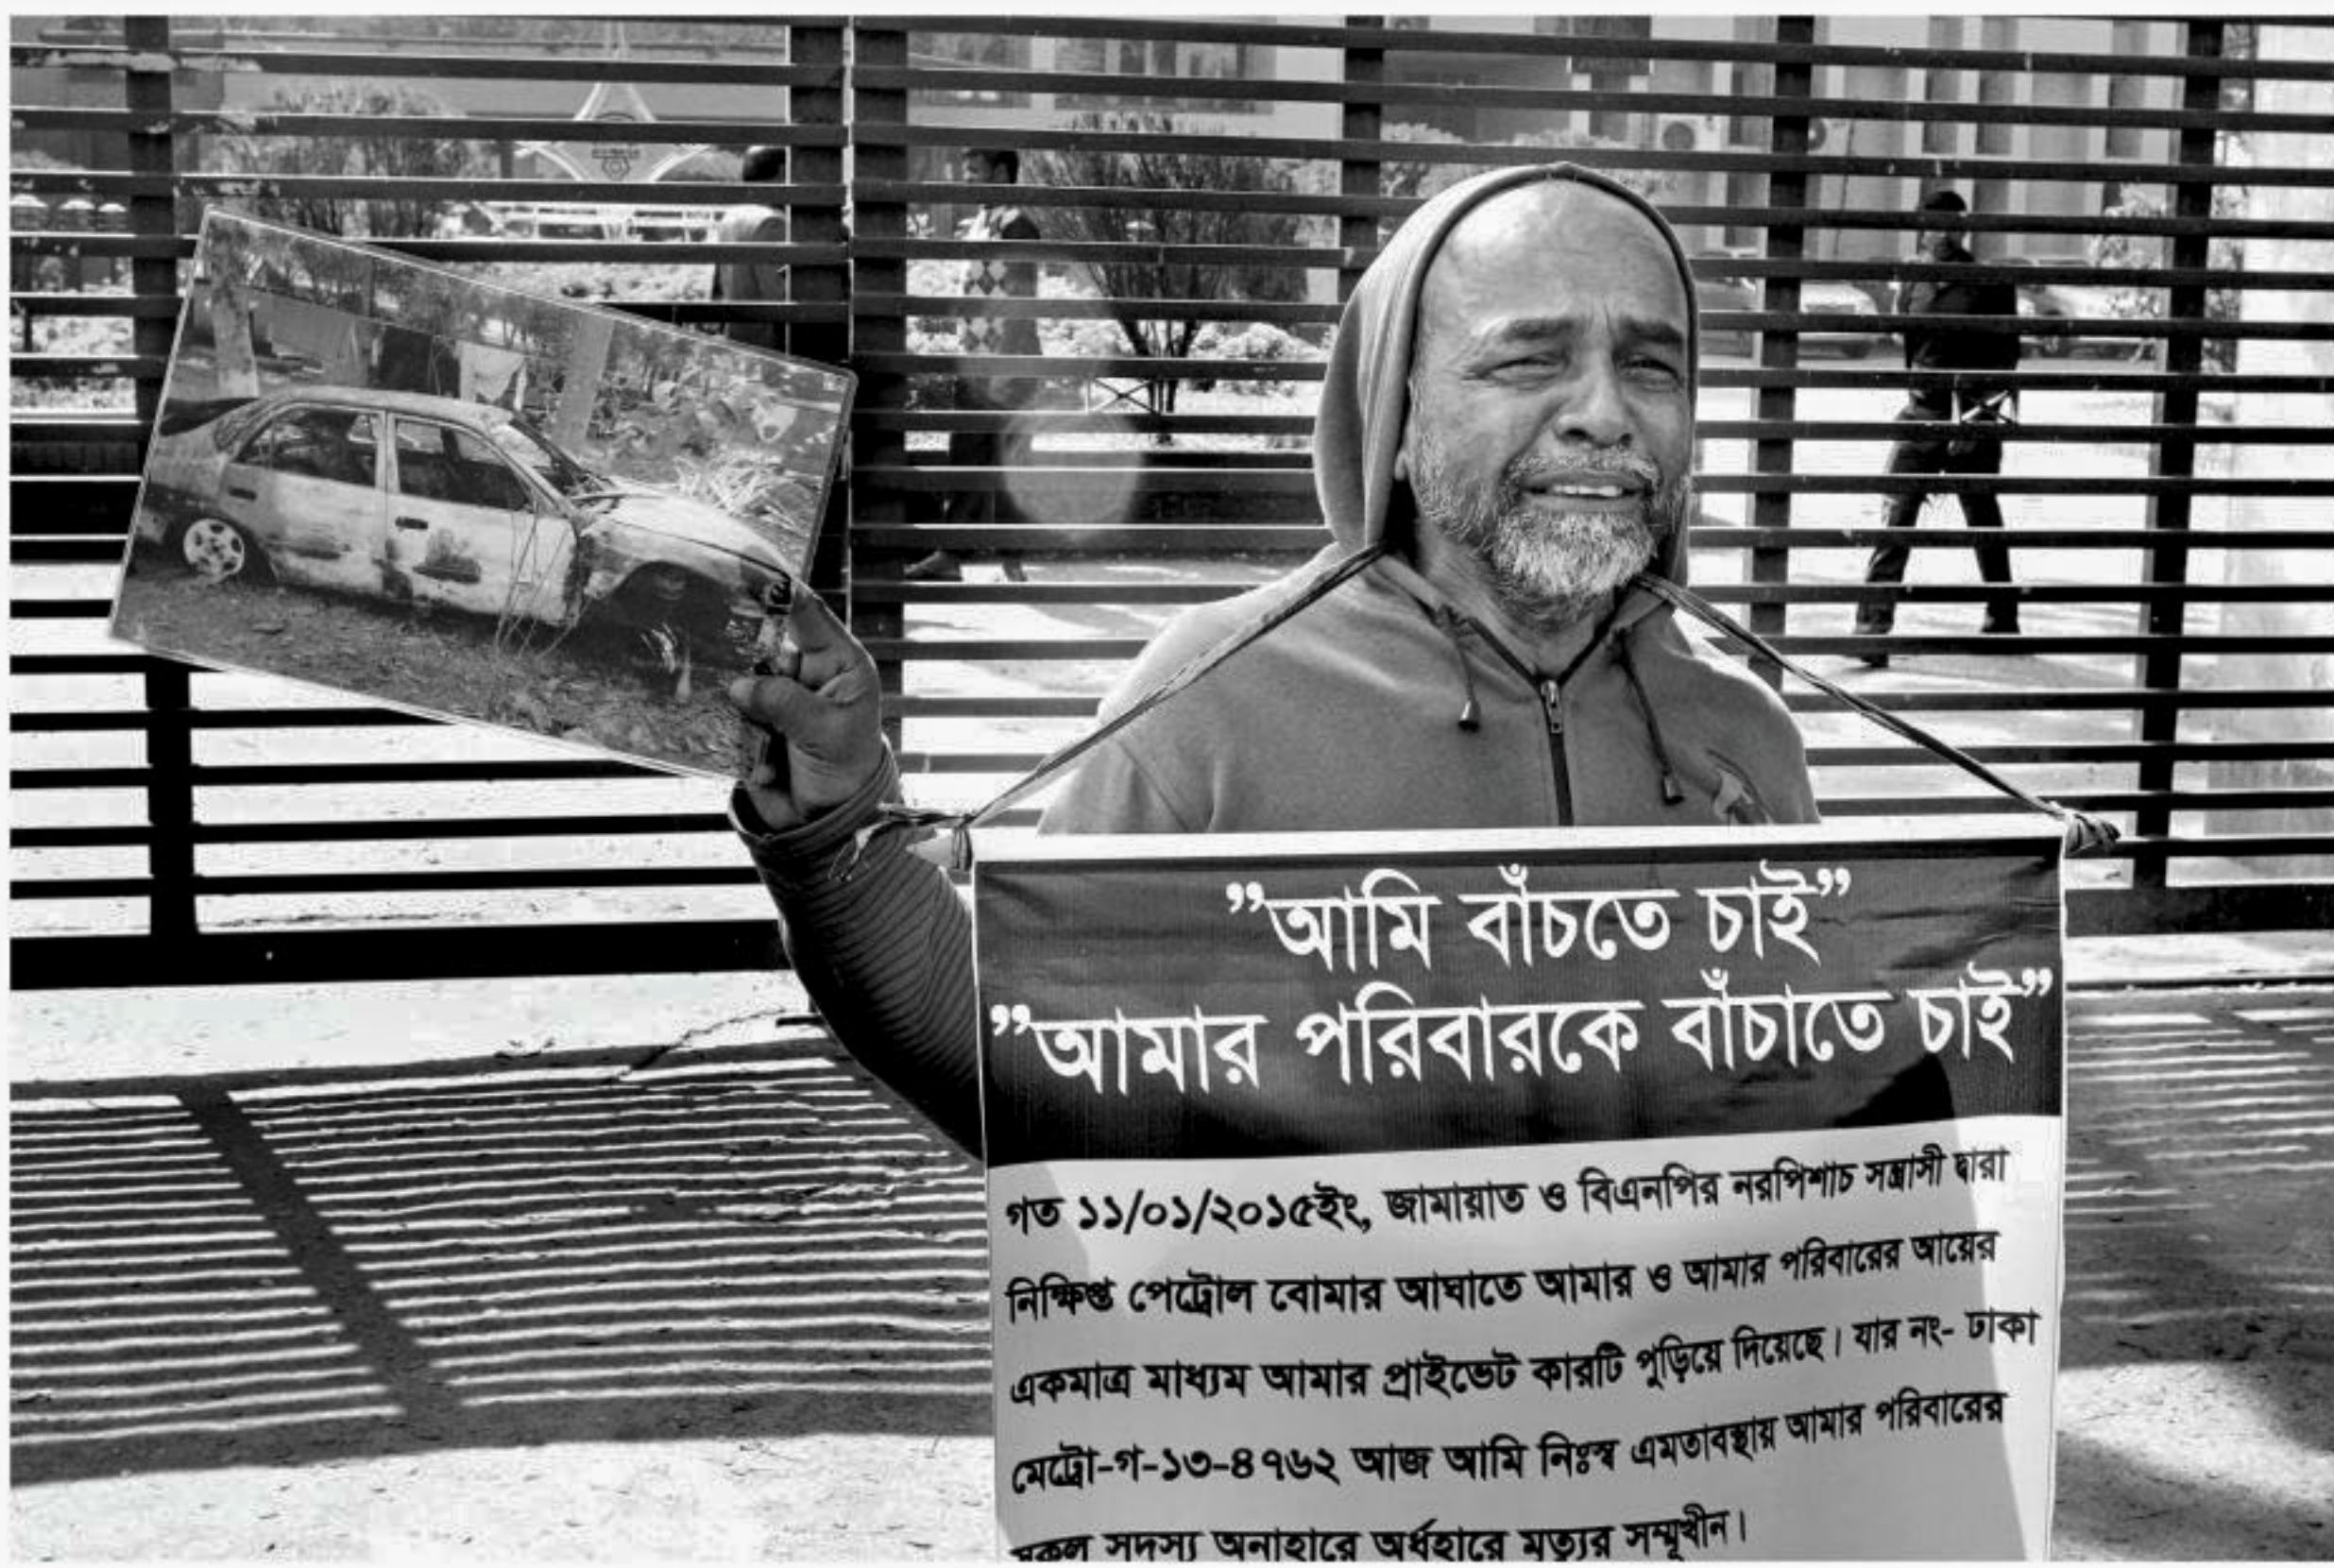 ”আমি বাঁচতে চাই”
”আমার পরিবারকে বাঁচাতে চাই”
গত ১১/০১/২০১৫ইং, জামায়াত ও বিএনপির নরপিশাচ সন্ত্রাসী দ্বারা
নিক্ষিপ্ত পেট্রোল বোমার আঘাতে আমার ও আমার পরিবারের আয়ের
একমাত্র মাধ্যম আমার প্রাইভেট কারটি পুড়িয়ে দিয়েছে। যার নং- ঢাকা
মেট্রো-গ-১৩-৪৭৬২ আজ আমি নিঃস্ব এমতাবস্থায় আমার পরিবারের
সকল সদস্য অনাহারে অর্ধহারে মৃত্যুর সম্মূখীন।